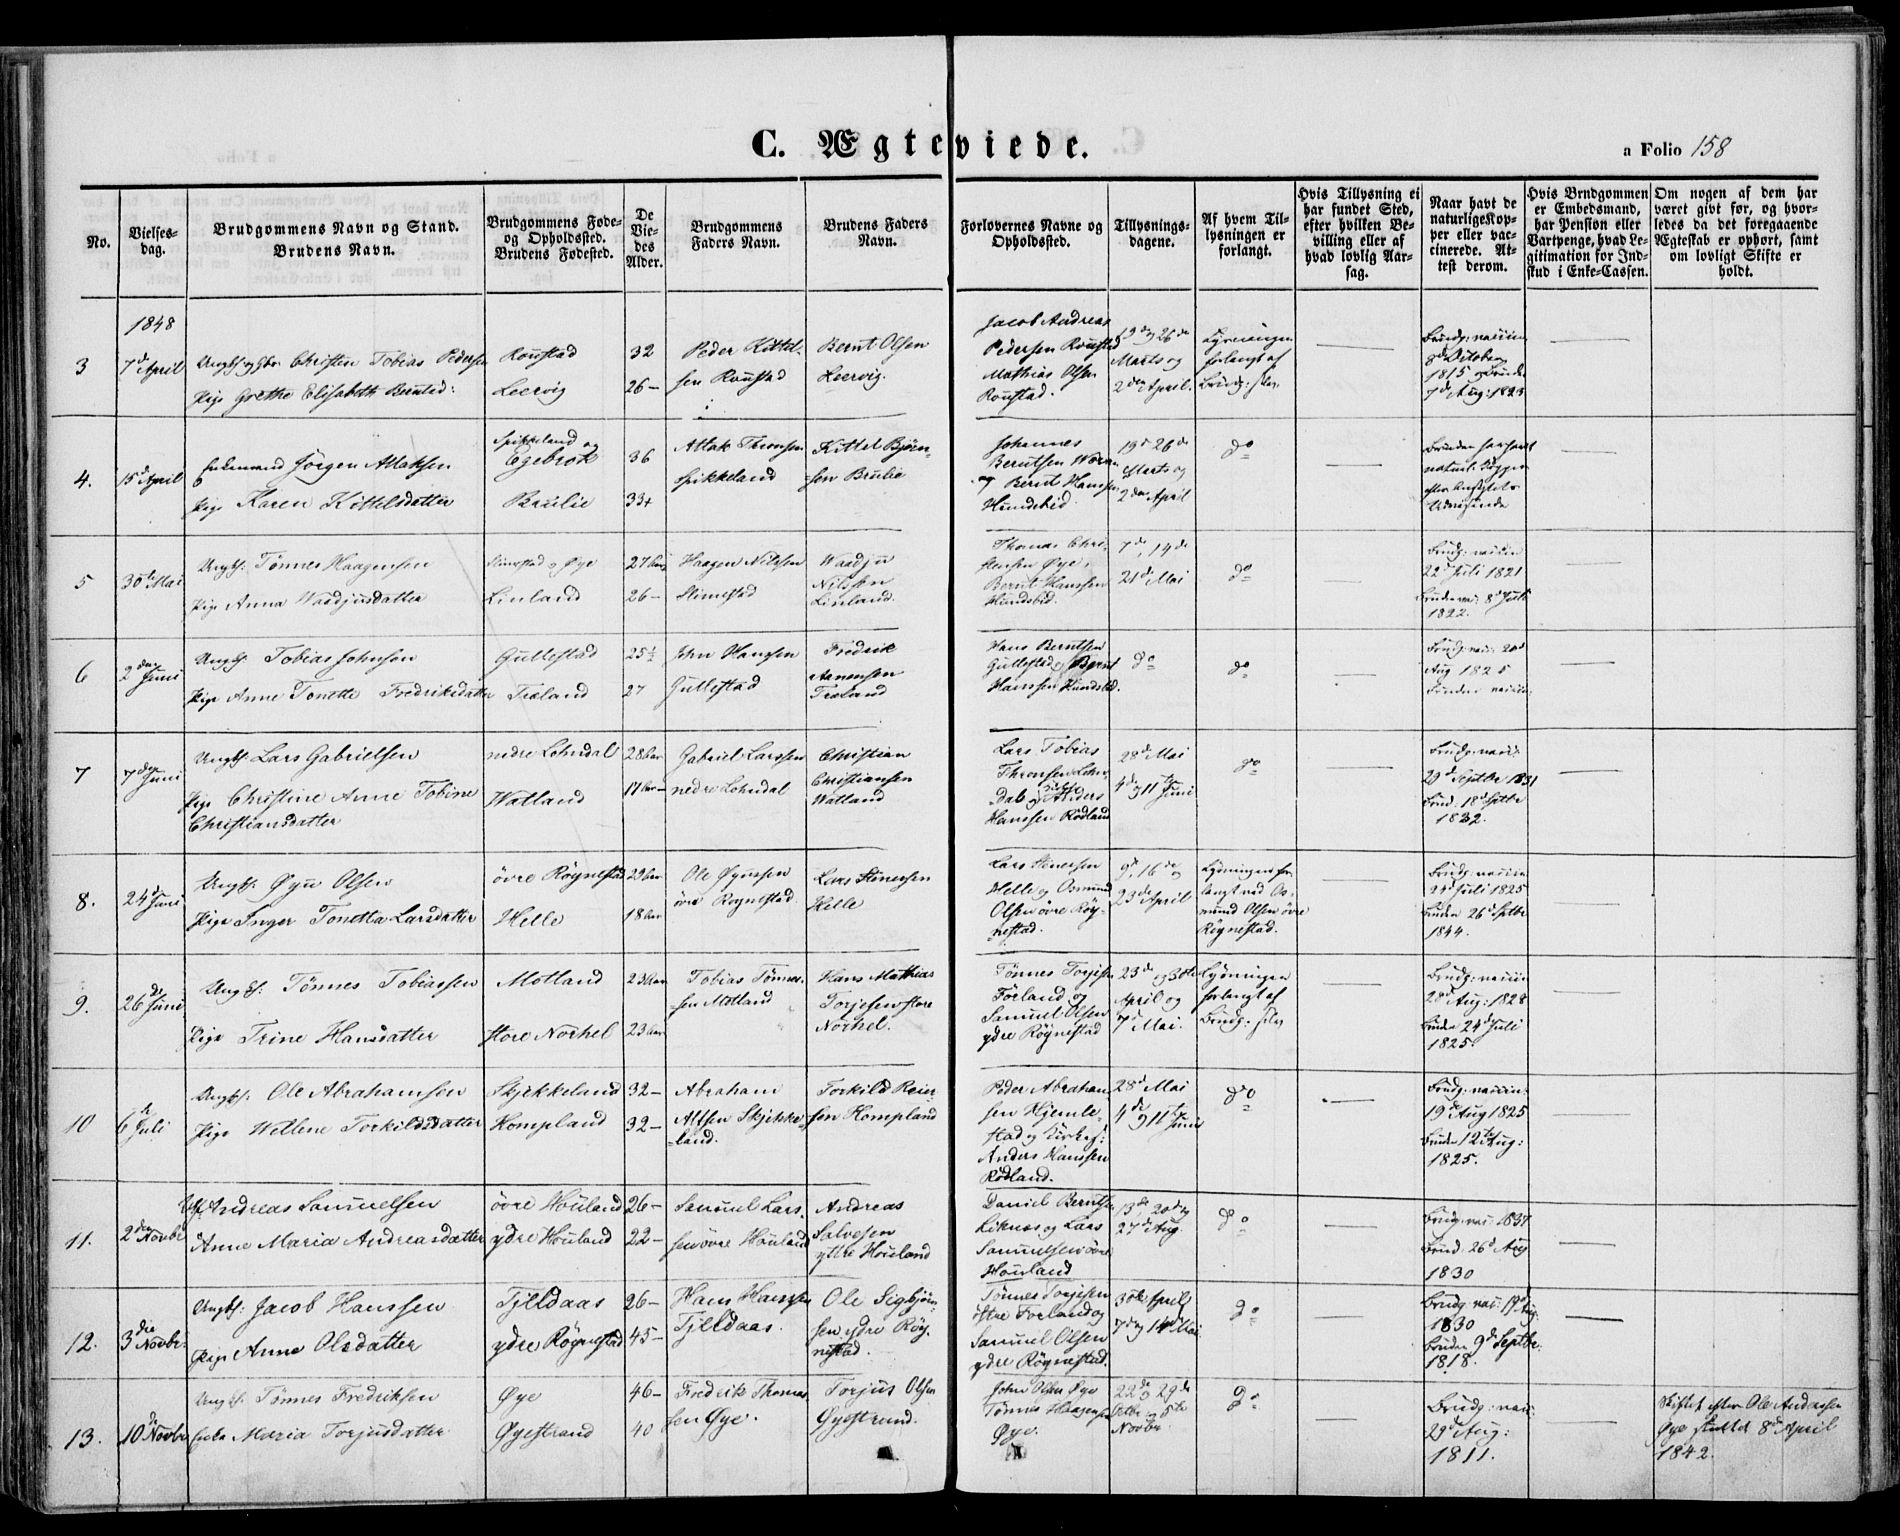 C. Ægteviede.
a Folio 158
No.
Vielses-
dag.
Brudgommens Navn og Stand.
Brudens Navn.
Brudgommens Føde-
og Opholdssted.
Brudens Fødested.
De
Vie-
des
Alder.
Brudgommens
Faders Navn.
Brudens Faders
Navn.
Forlovernes Navne og
Opholdssted.
Tillysnings-
dagene.
Af hvem Til-
lysningen er
forlangt.
Hvis Tillysning ei
har fundet Sted,
efter hvilken Be-
villing eller af
hvad lovlig Aar-
sag.
Naar havt de
naturlige Kop-
per eller vac-
cinerede. At-
test derom.
Hvis Brudgommen
er Embedsmand,
har Pension eller
Vartpenge, hvad Le-
gitimation for Ind-
skud i Enke-Cassen.
Om nogen af dem har
været givt før, og hvor-
ledes da det foregaaende
Ægteskab er ophørt, samt
om lovligt Skifte er
holdt.
1848
3
7 d April
Christen Tobias Pedersen
Pige Grethe Elisabeth Berntsd:
Roustad
Leervig
32
26 -
Peder Kittel-
sen Roustad
Bernt Olsen
Leervig.
Jacob Andreas
Pedersen Roustad
Mathias Olsen
Roustad.
19 de og 26 de
Marts og
2 den April.
forlangt af
Brudg: selv
October
1815 og Brud
7 d Aug: 1823
4.
15 d April
Enkemand Jørgen Atlaksen
Pige Karen Kittelsdatter
Spikkeland og
Egebrok
Brulie
36
33+
Atlak Thronsen
Spikkeland
Kittel Bjørn-
sen Brulie
Johannes
Berntsen
og Bernt Hanssen
Hundsbid.
19 d 26 de
Marts og
2 den April
do
Bruden har havt
naturl. Kopper
efter
Udvisende
5
30 te Mai
Ungk. Tønnes Haagensen
Pige Anna Waadjusdatter
Slimestad og Øye
Linland
27 Aar
26 -
Haagen Nilssen
Slimestad
Waadju
Nilssen
Linland.
Thomas Chri-
stensen Øye,
Bernt Hanssen
Hundsbid.
7 de, 14 de
21 d Mai
do
22 d Juli 1821
8 d Juli
1822.
6
2 den Juni
Ungk. Tobias Johnsen
Pige Anne Tonette Fredriksdatter
Gullestad
Træland
25 1/2
27
John Hanssen
Gullestad
Fredrik
Aanensen
Træland
Hans Berntsen
Gullestad og Bernt
Hanssen Hundsbid.
do
do
Brudg: vac: 20 d
Aug 1825
Bruden vaccin:
7
7 den Juni
Ungk. Lars Gabrielsen
Pige Christine Anne Tobine
Christiansdatter
nedre Lohndal
Watland
28 Aar
17 Aar -
Gabriel Larssen
nedre Lohndal
Christian
Christiansen
Watland
Lars Tobias
Thronsen Lohn-
dal og Anders
Hanssen Rødland
28 de Mai
4 de og 11 te Juni
do
Brudg: vaccin:
29 d Septbr 1831
Brud: 18 d Septbr
1832.
8.
24 d Juni
Ungk. Øyu Olsen
Pige Inger Tonetta Larsdatter
øvre Røynestad
Helle
29 Aar
18 Aar
Ole Øyussen
øvre Røynestad.
Lars Stinersen
Helle
Lars Stinersen
Helle og Osmund
Olsen øvre Røy-
nestad.
9 d, 16 de og
23 d April
Lysningen for-
langt ved Os-
mund Olsen øvre
Røynestad.
Brudg: vaccin
24 d Juli 1825
Bruden 26 d Septbr
1844.
9.
26 de Juni
Ungk: Tønnes Tobiassen
Pige Trine Hansdatter
Motland
store Norhel
23 Aar
23 Aar
Tobias Tønnes-
sen Motland
Hans Mathias
Torjesen store
Norhel.
Tønnes Torjesen
Førland og
Samuel Olsen
ydre Røynestad
23 de og 30 te
April og
7 d Mai.
Lysningen
forlangt af
Brudg. selv
Brudg: vaccin
28 d Aug: 1828
Bruden 24 d Juli
1825.
10
6 te Juli
Ungk: Ole Abrahamsen
Pige Wellene Torkildsdatter
Skjekkeland
Kompland
32 -
32 -
Abraham
Altsen Skjekke-
land.
Torkild Reier-
sen Kompland
Peder Abraham-
sen Hjemle-
stad og Kirkes:
Anders Hanssen
Rødland.
28 d Mai
4 de og 11 te Juni
do
Brudg: vaccin:
19 de Aug 1825
Bruden 12 te Aug:
1825.
11.
2 den Novbr
Andreas Samuelsen
Anne Maria Andreasdatter
øvre Houland
ydre Houland
26 -
22 -
Samuel Lars-
sen øvre Houland
Andreas
Salvesen
yttre Houland
Daniel Berntsen
Liknes og Laas
Samuelsen øvre
Houland
13 de, 20 de og
27 d Aug.
do
Brudg: vac: 1837
Brud: 26 d Aug
1830
12.
3 die Novbr:
Ungk: Jacob Hanssen
Pige Anne Olsdatter
Tjelldaas
ydre Røynestad
26 -
45 -
Hans Hanssen
Tjelldaas.
Ole Sigbjørn-
sen ydre Røy-
nestad.
Tønnes Torjesen
østre Førland og
Samuel Olsen
ydre Røynestad.
30 te April
7 de og 14 d Mai
do
Brudg vac: 19 d Aug:
1830
Bruden 9 d Septbr:
1818.
13.
10 de Novbr
Ungk: Tønnes Fredriksen
Enke Maria Torjusdatter
Øye
Øyestrand
46 -
40
Fredrik Thomas-
sen Øye.
Torjus Olsen
Øyestrand.
John Olsen Øye
Tønnes Haagensen
Øye.
22 de og 29 de
Octbr og 5 te
Novbr
do
Brudg: vac:
29 d Aug:
1811.
Skiftet efter Ole Andersen
Øye sluttet 8 d April
1842.